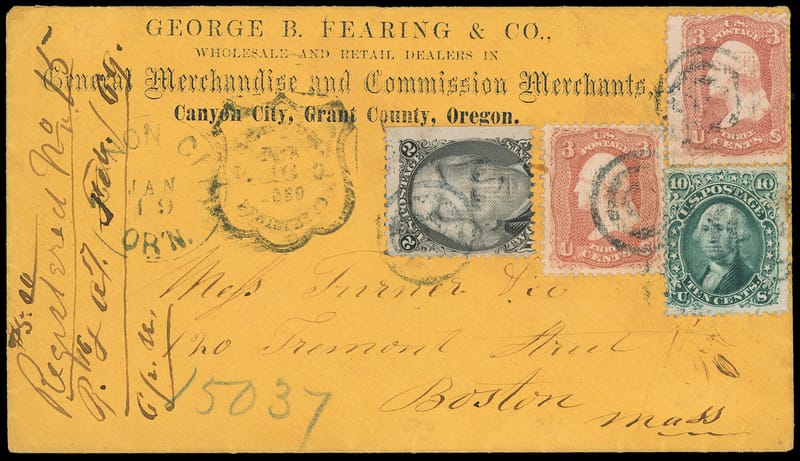 GEORGE B. FEARING & CO.,
WHOLESALE AND RETAIL DEALERS IN
General Merchandise and Commission Merchants,
Canyon City, Grant County, Oregon.
3 U.S. POSTAGE 3
U THREE CENTS S
2 POSTAGE 2
3 U.S. POSTAGE 3
U THREE CENTS
10 10
U.S. POSTAGE
U TEN CENTS S
JAN
19
OR'N.
1869
Registered No 15
Mess Turner & Co
120 Tremont Street
Boston
Mass
15037